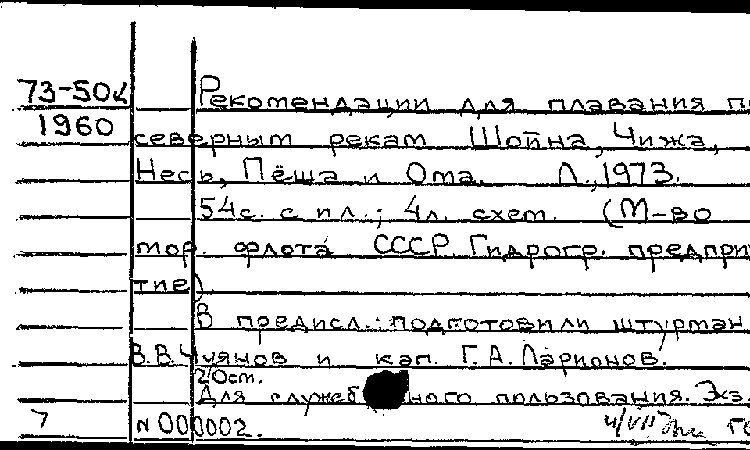 73-50к Рекомендации для плавания п
1960 северным рекам Шойна, Чижа,
Несь, Пёша и Ома. Л., 1973.
54с. с ил.; 4л. схем. (М-во
мор. флота СССР. Гидрогр. предприя
тие).
В предисл.: подготовили штурман
В.В. Чуянов и кап. Г.А. Ларионов.
20см.
Для служебного пользования. Экз.
7 N 000002. 4/VII